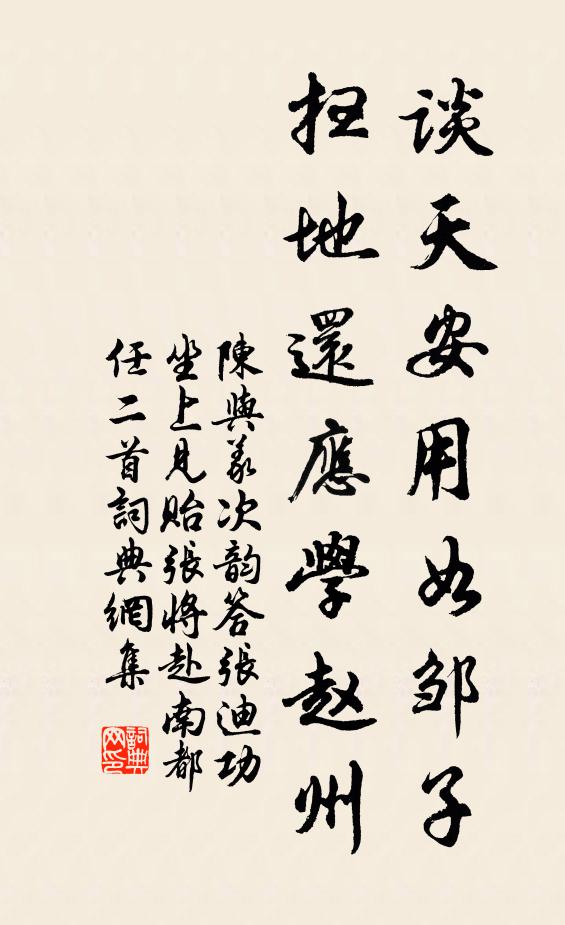 谈天安用如邹子
扫地還應學赵州
陳與義次韵答張迪功
坐上見貽張将赴南都
任二首詞典網集
詞典
网印